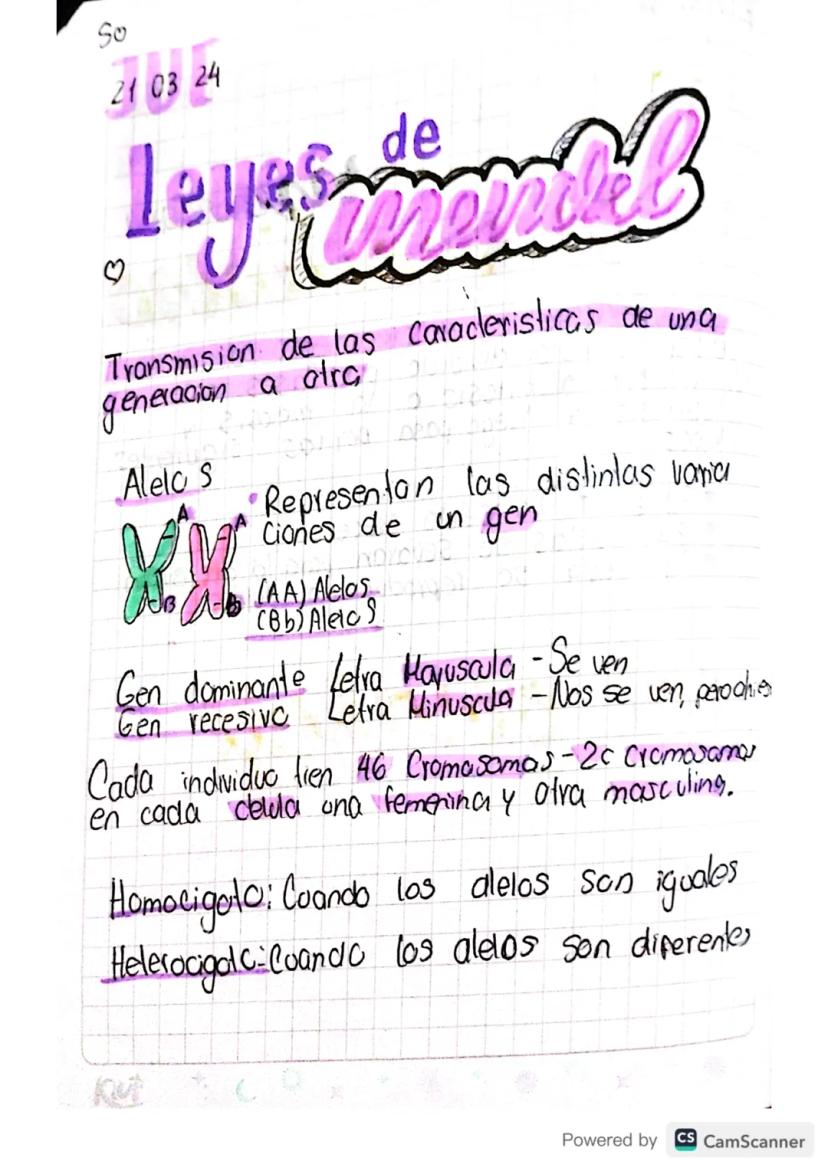 So
JUE
21 03 24
Leyes de
mendel
Transmision de las caracteristicas de una
generacion a otra
Alelos
A A
B b
Representan las distintas varia
ciones de un gen
(AA) Alelos
(Bb) Alelos
Gen dominante Letra Mayuscula - Se ven
Gen recesivo Letra Minuscula - Nos se ven, pero
Cada individuo tien 46 Cromosomas - 2c cromosomas
en cada celula una femenina y otra masculina.
Homocigoto: Cuando los alelos son iguales
Heterocigoto: Cuando los alelos son diferentes
Powered by CS CamScanner